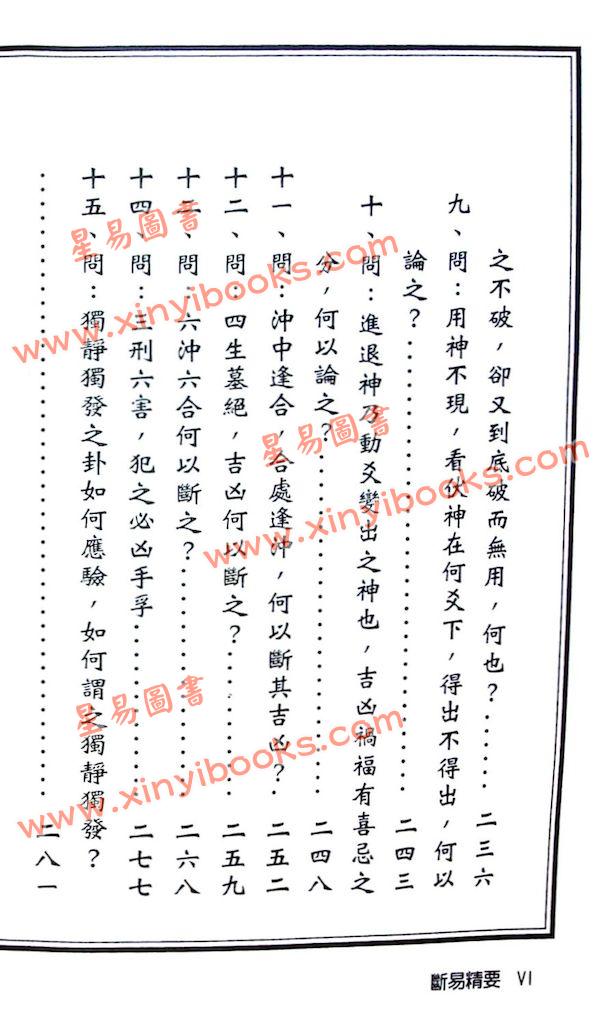 之不破，卻又到底破而無用，何也？……二三六
九、問：用神不現，看伏神在何爻下，得出不得出，何以
論之？……………………二四三
十、問：進退神乃動爻變出之神也，吉凶禍福有喜忌之
分，何以論之？……………………二四八
十一、問：沖中逢合，合處逢沖，何以斷其吉凶？…二五二
十二、問：四生墓絕，吉凶何以斷之？…………二五九
十三、問：六沖六合何以斷之？………………二六八
十四、問：三刑六害，犯之必凶手孚……………二七七
十五、問：獨靜獨發之卦如何應驗，如何謂之獨靜獨發？
……………………………………二八一
斷易精要 VI
星易圖書
www.xinyibooks.com
星易圖書
www.xinyibooks.com
星易圖書
www.xinyibooks.com